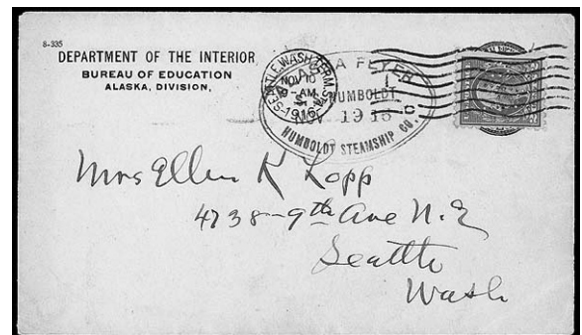 8-335
DEPARTMENT OF THE INTERIOR
BUREAU OF EDUCATION
ALASKA, DIVISION,
SEATTLE, WASH. TERM. STA.
NOV 10
AM
1916
A FLYER
HUMBOLDT
1916
HUMBOLDT STEAMSHIP CO.
Mrs Ellen K Lopp
4738-9th Ave N.E
Seattle
Wash